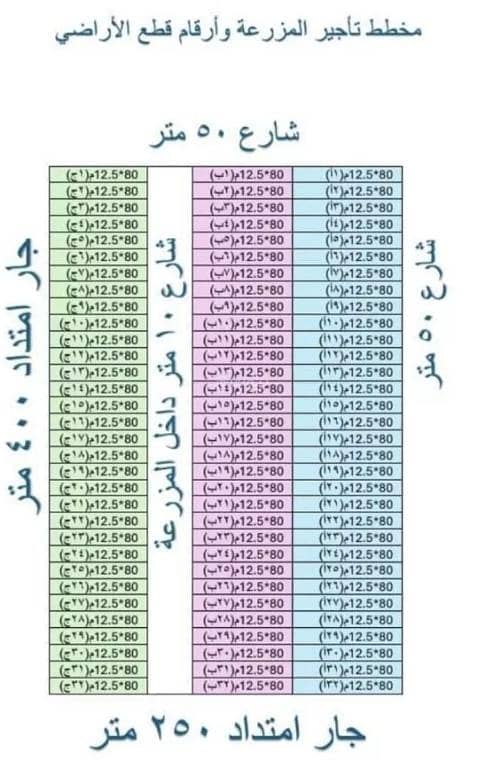 مخطط تأجير المزرعة وأرقام قطع الأراضي
شارع ٥٠ متر
شارع ٥٠ متر
80*12.5م(١أ) 80*12.5م(١ب) 80*12.5م(١ج)
80*12.5م(٢أ) 80*12.5م(٢ب) 80*12.5م(٢ج)
80*12.5م(٣أ) 80*12.5م(٣ب) 80*12.5م(٣ج)
80*12.5م(٤أ) 80*12.5م(٤ب) 80*12.5م(٤ج)
80*12.5م(٥أ) 80*12.5م(٥ب) 80*12.5م(٥ج)
80*12.5م(٦أ) 80*12.5م(٦ب) 80*12.5م(٦ج)
80*12.5م(٧أ) 80*12.5م(٧ب) 80*12.5م(٧ج)
80*12.5م(٨أ) 80*12.5م(٨ب) 80*12.5م(٨ج)
80*12.5م(٩أ) 80*12.5م(٩ب) 80*12.5م(٩ج)
80*12.5م(١٠أ) 80*12.5م(١٠ب) 80*12.5م(١٠ج)
80*12.5م(١١أ) 80*12.5م(١١ب) 80*12.5م(١١ج)
80*12.5م(١٢أ) 80*12.5م(١٢ب) 80*12.5م(١٢ج)
80*12.5م(١٣أ) 80*12.5م(١٣ب) 80*12.5م(١٣ج)
80*12.5م(١٤أ) 80*12.5م(١٤ب) 80*12.5م(١٤ج)
80*12.5م(١٥أ) 80*12.5م(١٥ب) 80*12.5م(١٥ج)
80*12.5م(١٦أ) 80*12.5م(١٦ب) 80*12.5م(١٦ج)
80*12.5م(١٧أ) 80*12.5م(١٧ب) 80*12.5م(١٧ج)
80*12.5م(١٨أ) 80*12.5م(١٨ب) 80*12.5م(١٨ج)
80*12.5م(١٩أ) 80*12.5م(١٩ب) 80*12.5م(١٩ج)
80*12.5م(٢٠أ) 80*12.5م(٢٠ب) 80*12.5م(٢٠ج)
80*12.5م(٢١أ) 80*12.5م(٢١ب) 80*12.5م(٢١ج)
80*12.5م(٢٢أ) 80*12.5م(٢٢ب) 80*12.5م(٢٢ج)
80*12.5م(٢٣أ) 80*12.5م(٢٣ب) 80*12.5م(٢٣ج)
80*12.5م(٢٤أ) 80*12.5م(٢٤ب) 80*12.5م(٢٤ج)
80*12.5م(٢٥أ) 80*12.5م(٢٥ب) 80*12.5م(٢٥ج)
80*12.5م(٢٦أ) 80*12.5م(٢٦ب) 80*12.5م(٢٦ج)
80*12.5م(٢٧أ) 80*12.5م(٢٧ب) 80*12.5م(٢٧ج)
80*12.5م(٢٨أ) 80*12.5م(٢٨ب) 80*12.5م(٢٨ج)
80*12.5م(٢٩أ) 80*12.5م(٢٩ب) 80*12.5م(٢٩ج)
80*12.5م(٣٠أ) 80*12.5م(٣٠ب) 80*12.5م(٣٠ج)
80*12.5م(٣١أ) 80*12.5م(٣١ب) 80*12.5م(٣١ج)
80*12.5م(٣٢أ) 80*12.5م(٣٢ب) 80*12.5م(٣٢ج)
شارع ١٠ متر داخل المزرعة
جار امتداد ٤٠٠ متر
جار امتداد ٢٥٠ متر